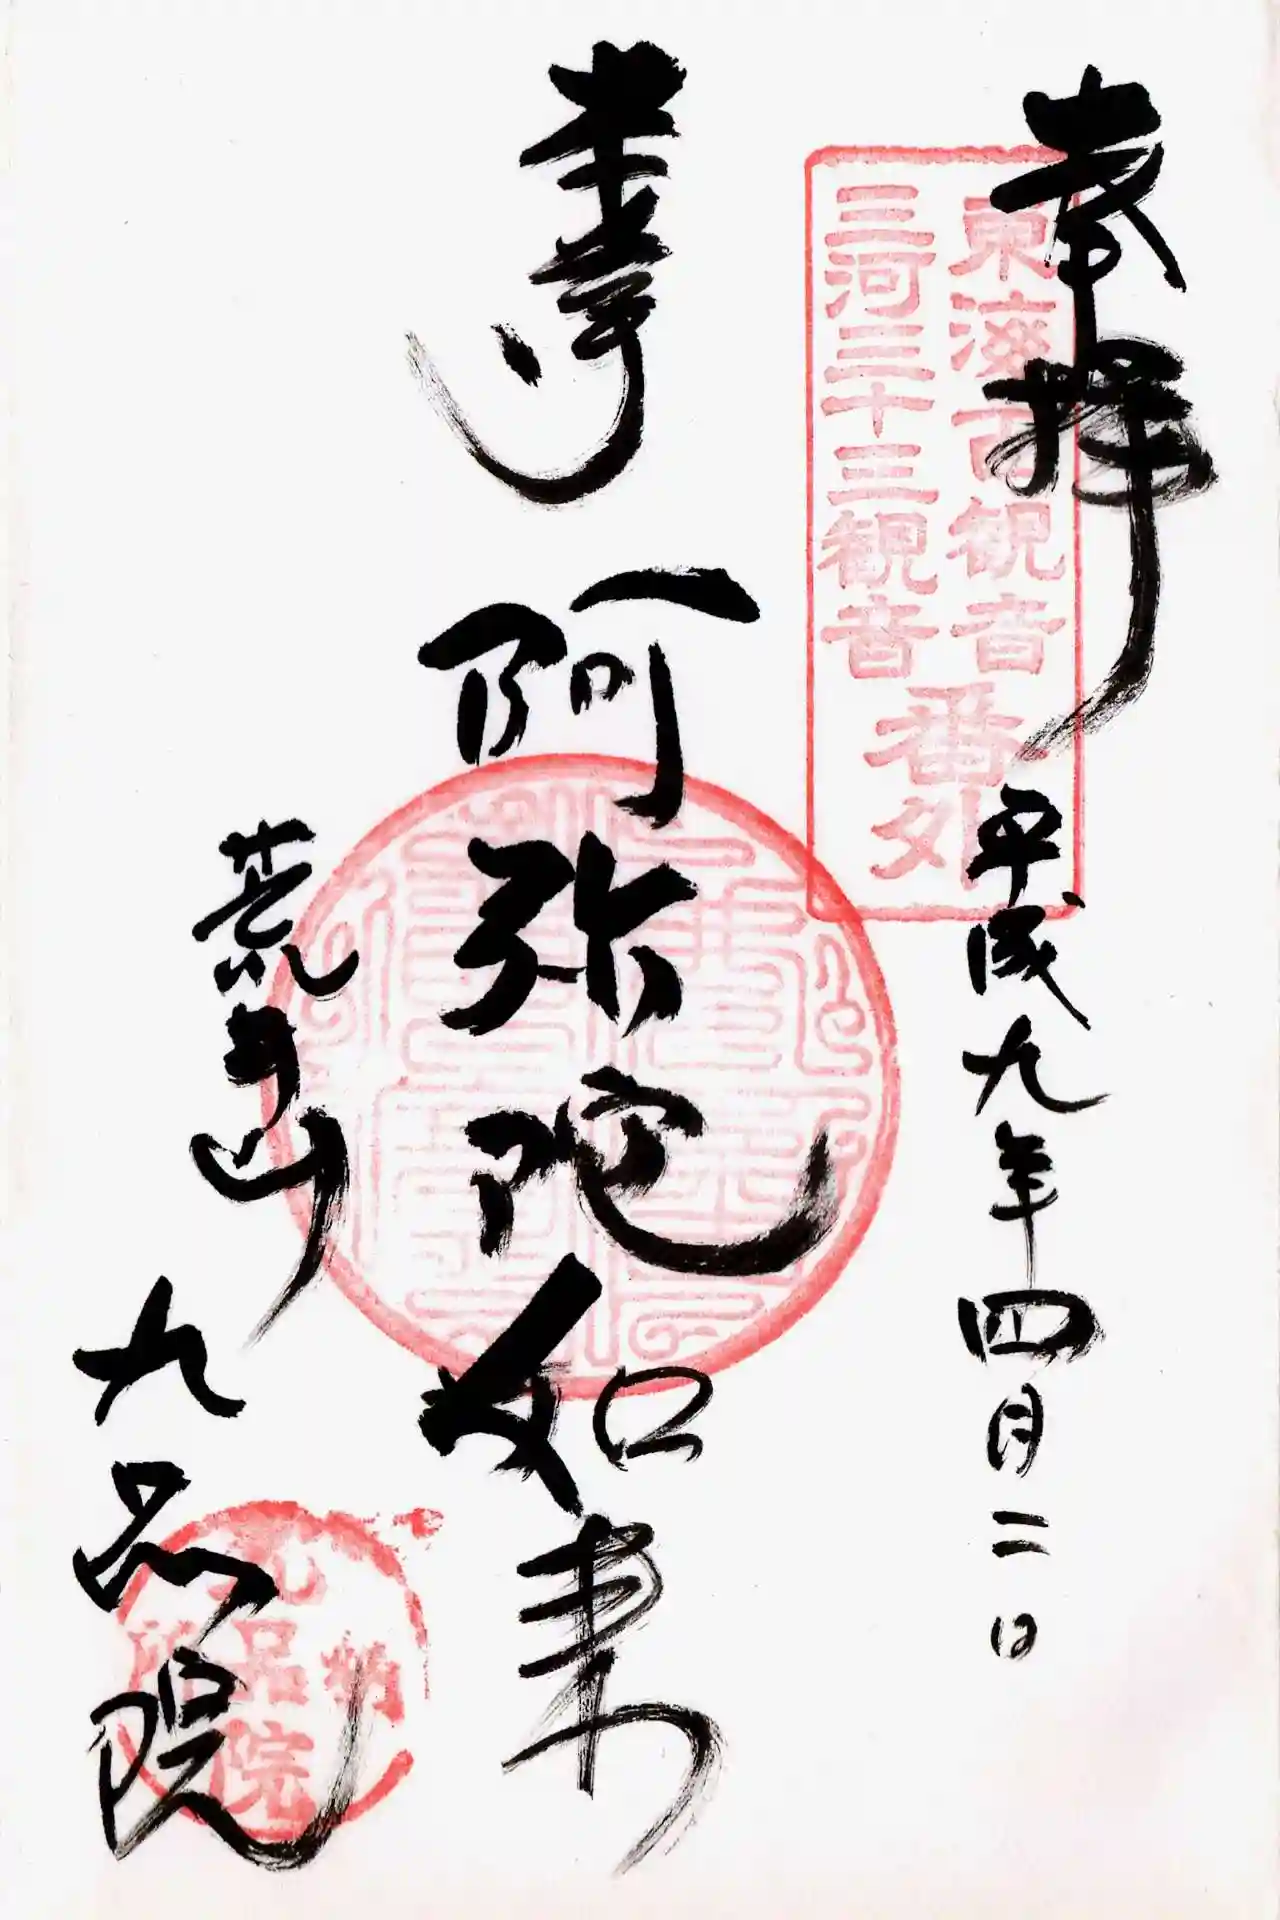 奉拝 平成九年四月二日
東海百観音
三河三十三観音
番外
本尊 阿弥陀如来
荒井山
九品院
九品院